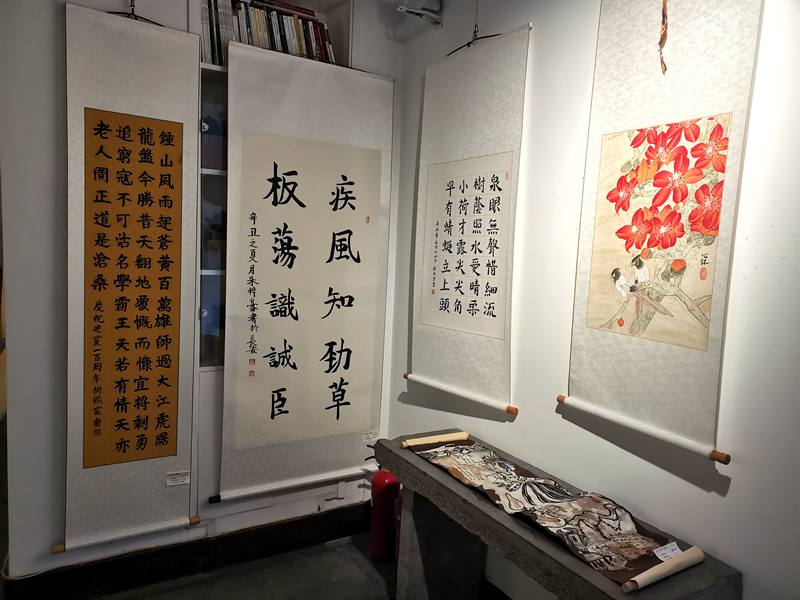 鍾山風雨起蒼黃百萬雄師過大江虎踞
龍盤今勝昔天翻地覆慨而慷宜將剩勇
追窮寇不可沽名學霸王天若有情天亦
老人間正道是滄桑 慶祝建黨一百周年胡熙
疾風知勁草
板蕩識誠臣
辛丑之夏月朱書於長安
泉眼無聲惜細流
樹蔭照水愛晴柔
小荷才露尖尖角
早有蜻蜓立上頭